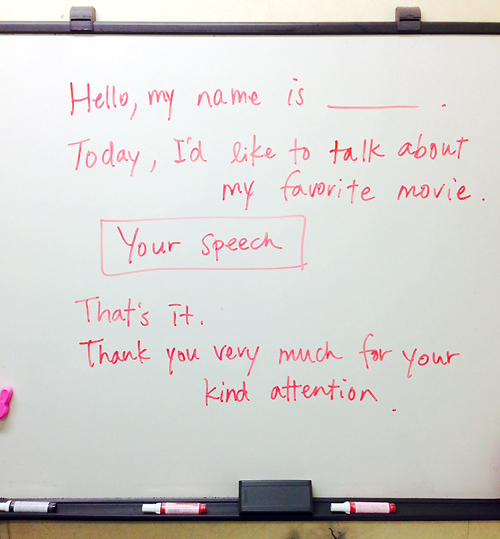 Hello, my name is ______.
Today, I'd like to talk about
my favorite movie.
Your speech
That's it.
Thank you very much for your
kind attention.